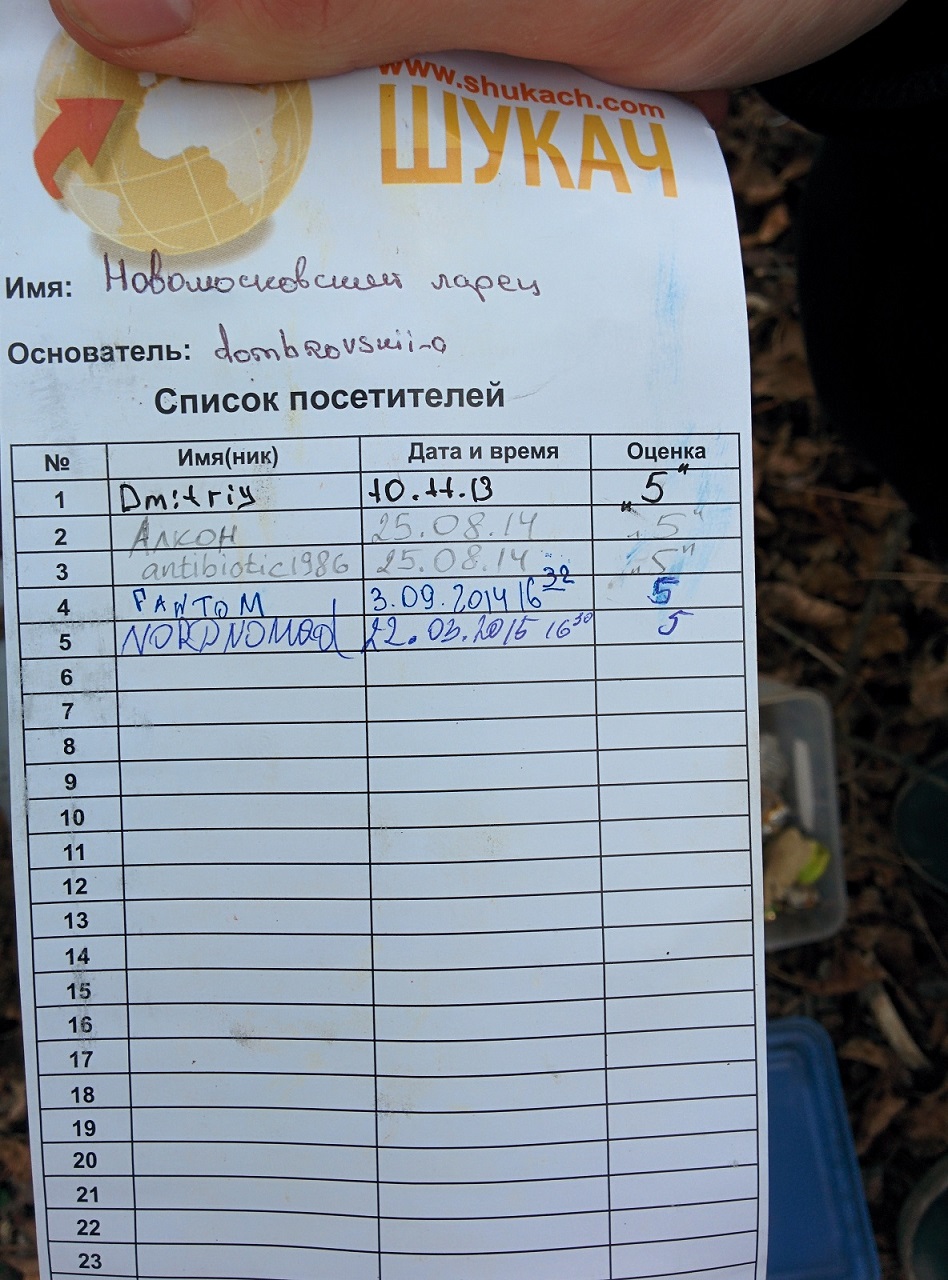 www.shukach.com
ШУКАЧ
Имя: Новомосковский ларец
Основатель: dombrovskii-a
Список посетителей
№ Имя(ник) Дата и время Оценка
1 Dmitriy 10.11.13 „5"
2 Алкон 25.08.14 „5"
3 antibiotic1986 25.08.14 „5"
4 FANTOM 3.09.2014 16 32 5
5 NORDNOMAd 22.03.2015 16 30 5
6
7
8
9
10
11
12
13
14
15
16
17
18
19
20
21
22
23